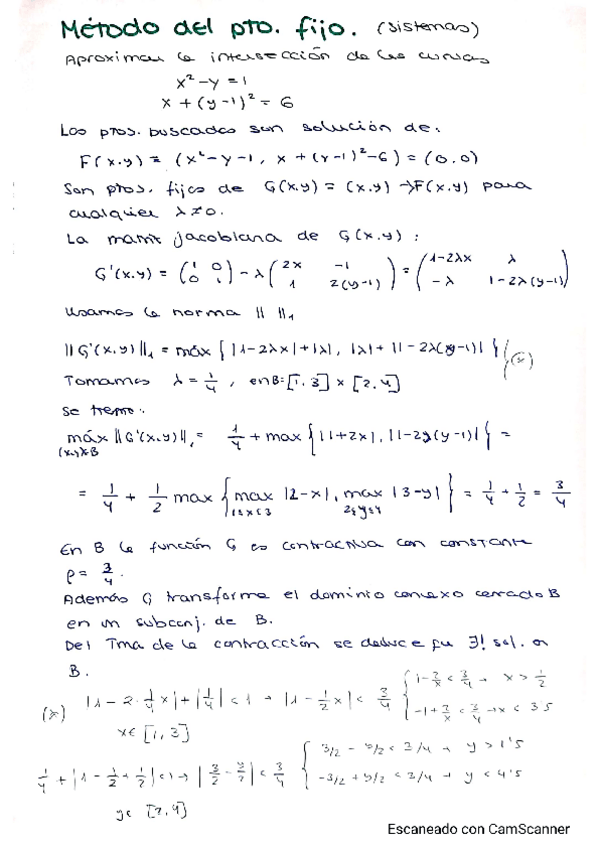 Método del pto. fijo. (sistemas)
Aproximar la intersección de las curvas
x² - y = 1
x + (y-1)² = 6
Los ptos. buscados son solución de:
F(x,y) = (x²-y-1, x+(y-1)²-6) = (0,0)
Son ptos. fijos de G(x,y) = (x,y) - λF(x,y) para
cualquier λ≠0.
La matriz jacobiana de G(x,y):
G'(x,y) = (1 0 0 1) - λ (2x -1 1 2(y-1)) = (1-2λx λ -λ 1-2λ(y-1))
Usamos la norma || ||₁
||G'(x,y)||₁ = máx { |1-2λx| + |λ|, |λ| + |1-2λ(y-1)| } (*)
Tomamos λ = 1/4, en B: [1,3] x [2,4]
se tiene:
máx ||G'(x,y)||₁ = 1/4 + max { |1+2x|, |1-2y(y-1)| } =
(x,y)∈B
= 1/4 + 1/2 max { max |2-x|, max |3-y| } = 1/4 + 1/2 = 3/4
1≤x≤3 2≤y≤4
En B la función G es contractiva con constante
ρ = 3/4.
Además G transforma el dominio convexo cerrado B
en un subconj. de B.
Del Tma de la contracción se deduce qu ∃! sol. en
B.
(*) |1 - 2·1/4 x| + |1/4| < 1 → |1 - 1/2 x| < 3/4 { 1 - 2/x < 3/4 → x > 1/2
-1 + 2/x < 3/4 → x < 3.5
x ∈ [1,3]
1/4 + |1 - y/2 + 1/2| < 1 → |3/2 - y/2| < 3/4 { 3/2 - y/2 < 3/4 → y > 1'5
-3/2 + y/2 < 3/4 → y < 4'5
y ∈ [2,4]
Escaneado con CamScanner